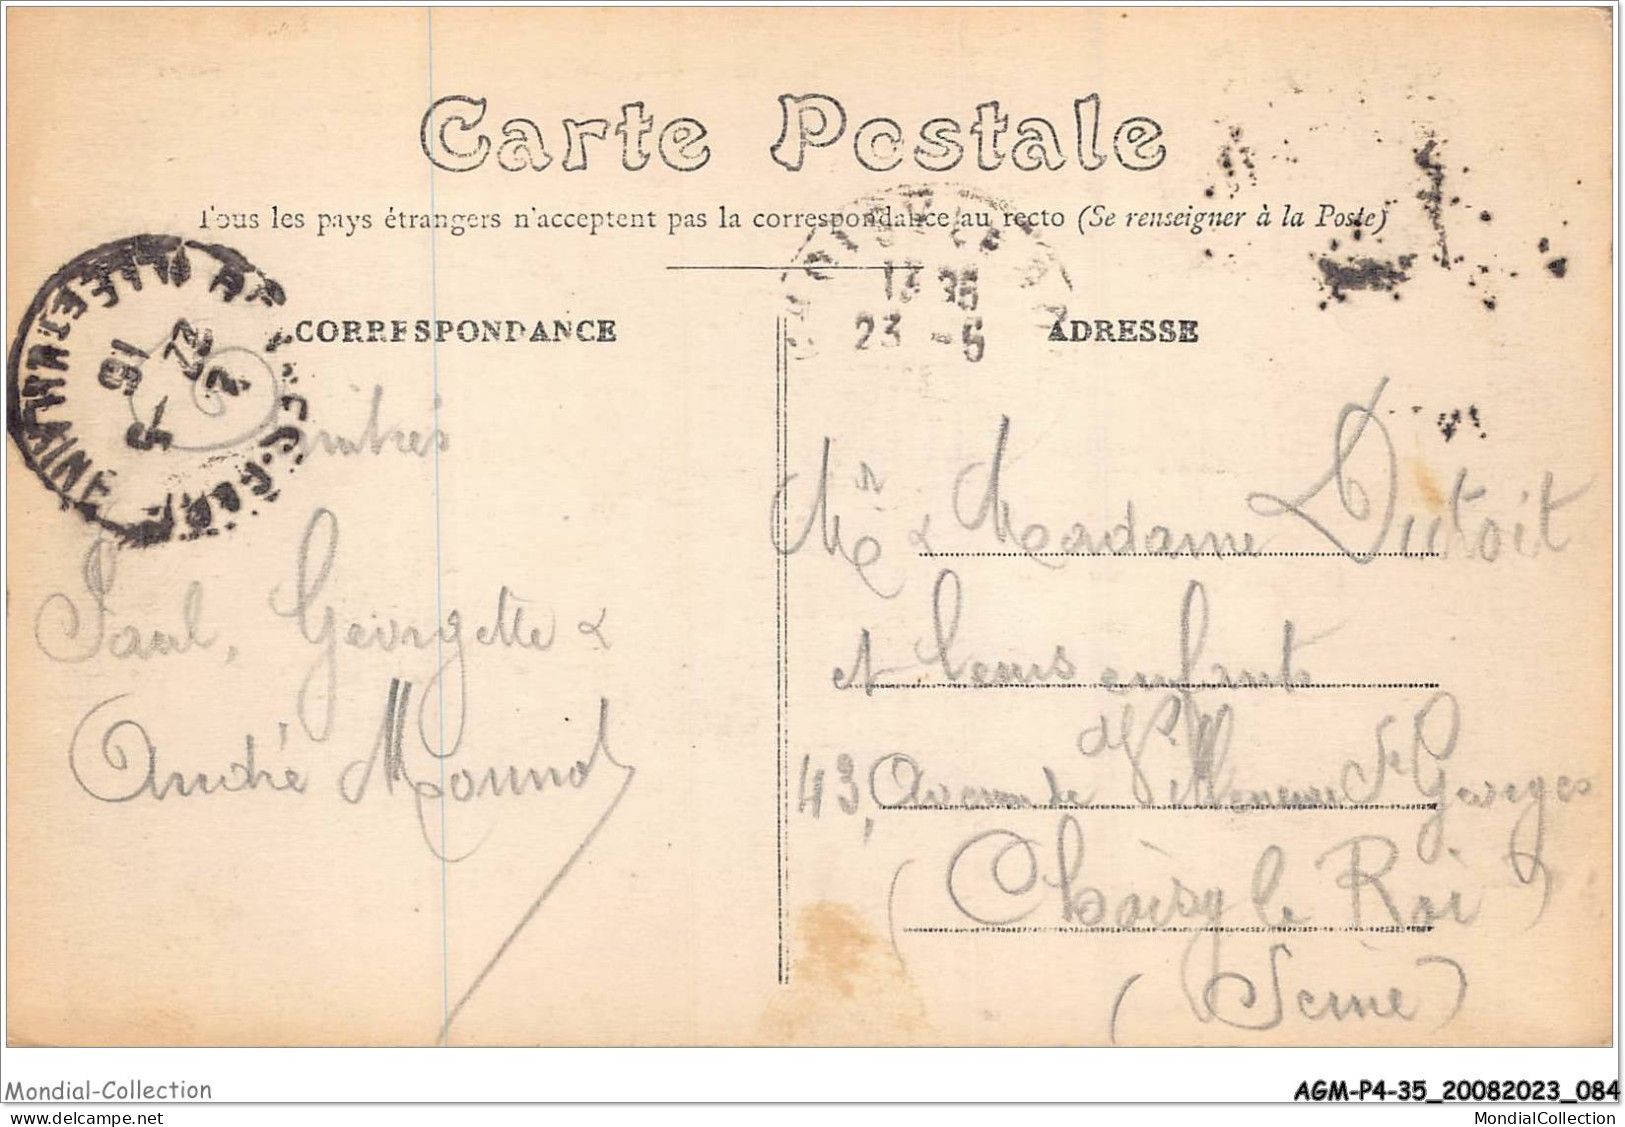 Carte Postale
Tous les pays étrangers n'acceptent pas la correspondance au recto (Se renseigner à la Poste)
CORRESPONDANCE
ADRESSE
13 35
23 -5
Paul, Georgette &
André Mounot
Mr & Madame Dutoit
et leurs enfants
43, Avenue de Villeneuve St Georges
(Choisy le Roi)
(Seine)
Mondial-Collection
AGM-P4-35_20082023_084
MondialCollection